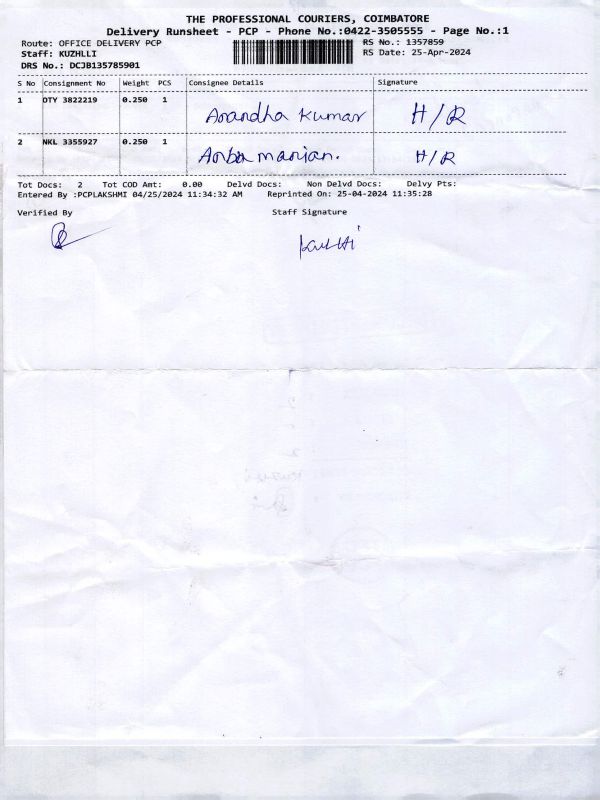 THE PROFESSIONAL COURIERS, COIMBATORE
Delivery Runsheet - PCP - Phone No.:0422-3505555 - Page No.:1
Route: OFFICE DELIVERY PCP
RS No.: 1357859
Staff: KUZHLLI
RS Date: 25-Apr-2024
DRS No.: DCJB135785901
S No Consignment No Weight PCS Consignee Details Signature
1 OTY 3822219 0.250 1
Anandha kumar H/R
2 NKL 3355927 0.250 1
H/R
Tot Docs: 2 Tot COD Amt: 0.00 Delvd Docs: Non Delvd Docs: Delvy Pts:
Entered By :PCPLAKSHMI 04/25/2024 11:34:32 AM Reprinted On: 25-04-2024 11:35:28
Verified By Staff Signature